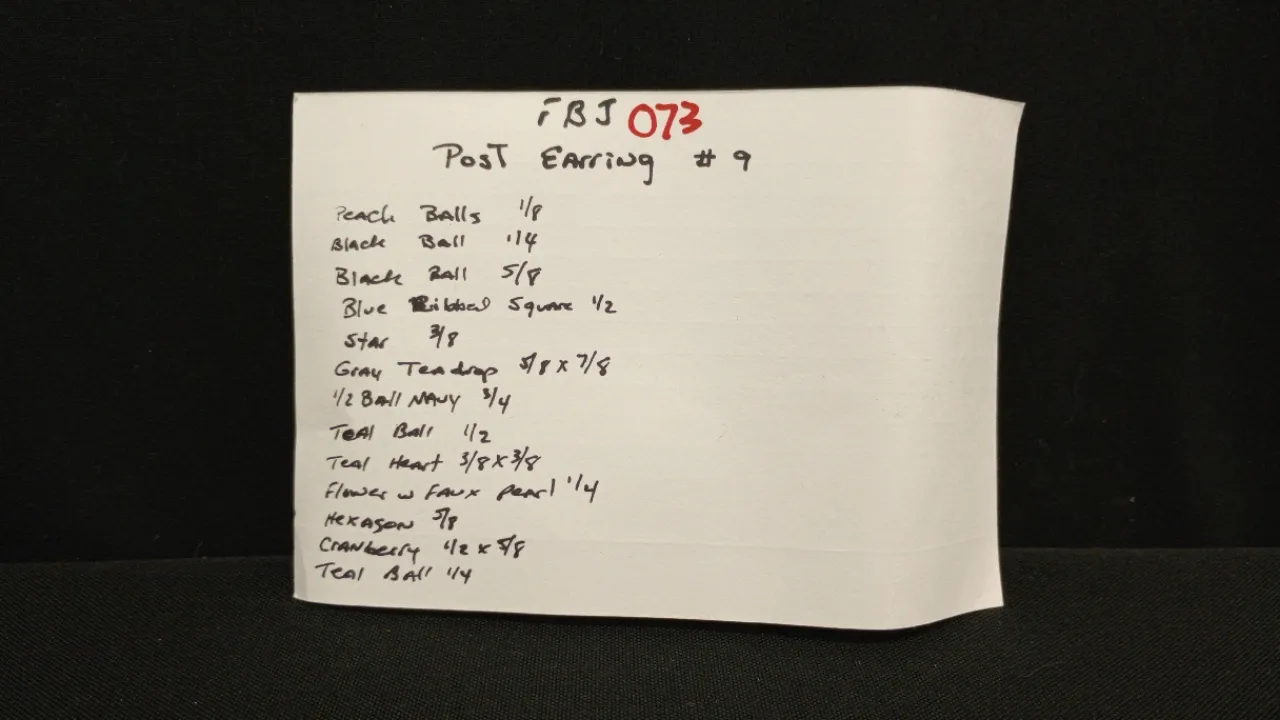 FBJ 073
Post Earring # 9
Peach Balls 1/8
Black Ball 1/4
Black Ball 5/8
Blue Ribbed Square 1/2
Star 3/8
Gray Teadrop 5/8 x 7/8
1/2 Ball Navy 3/4
Teal Ball 1/2
Teal Heart 3/8 x 3/8
Flower w Faux pearl 1/4
Hexagon 5/8
Cranberry 1/2 x 5/8
Teal Ball 1/4